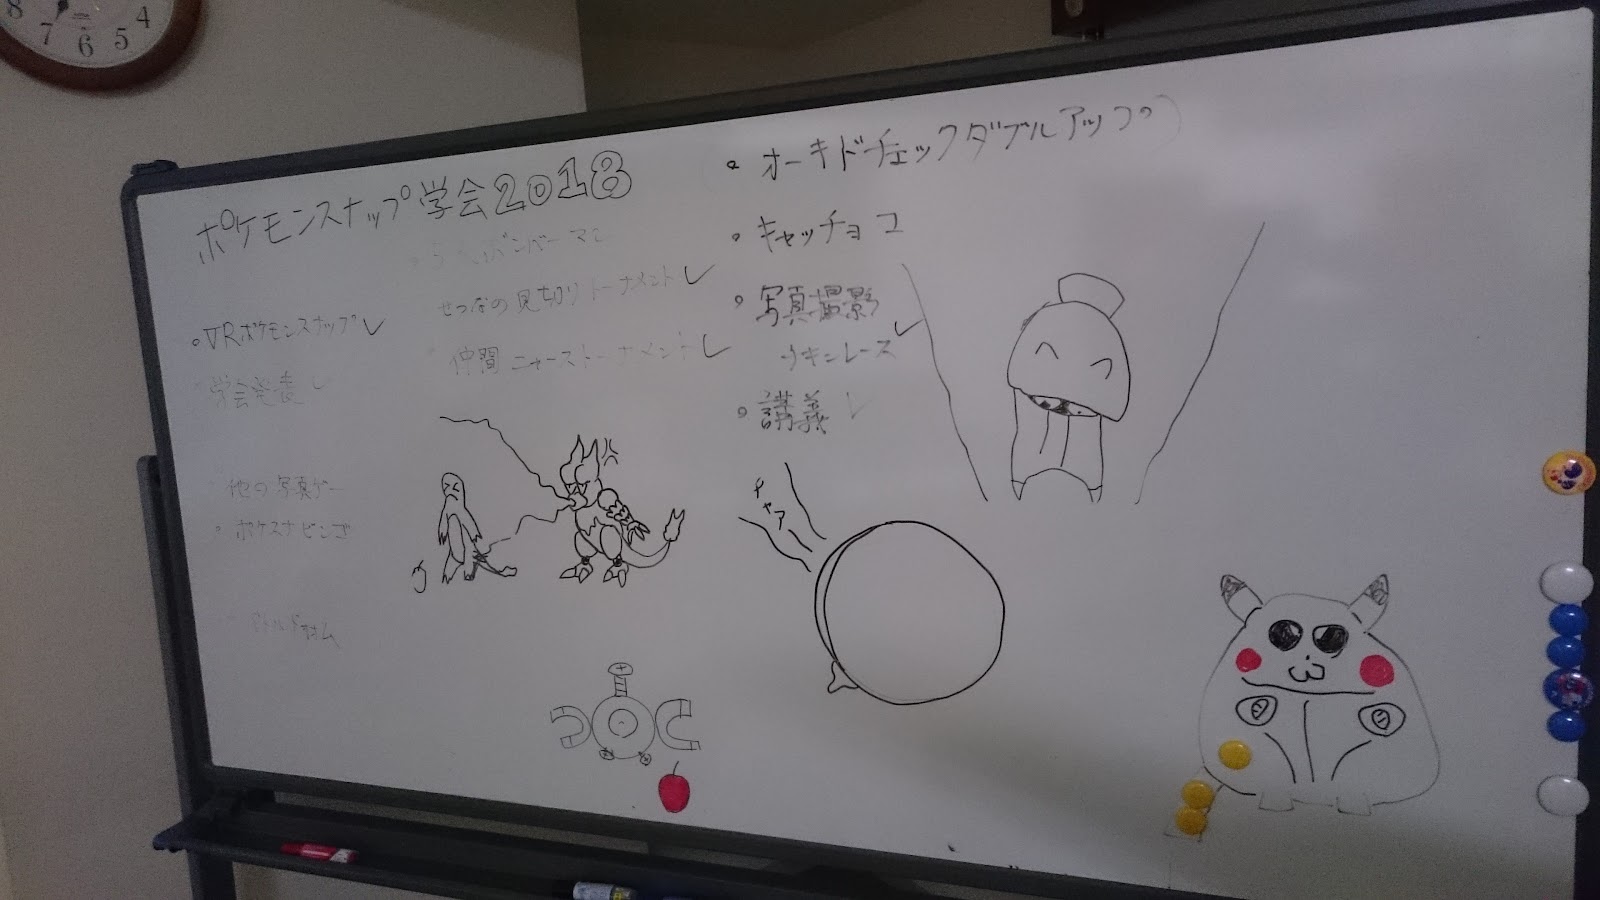 8 7 6 5 4
ポケモンスナップ学会2018
・VRポケモンスナップ✓
学会発表✓
他の写真ゲー
・ポケスナビンゴ
ボンバーマン
せつなの見切りトーナメント✓
仲間ニャーストーナメント✓
・オーキドチェックダブルアップ
・キャッチョコ
・写真撮影
リキシレース✓
・講義✓
ギャア